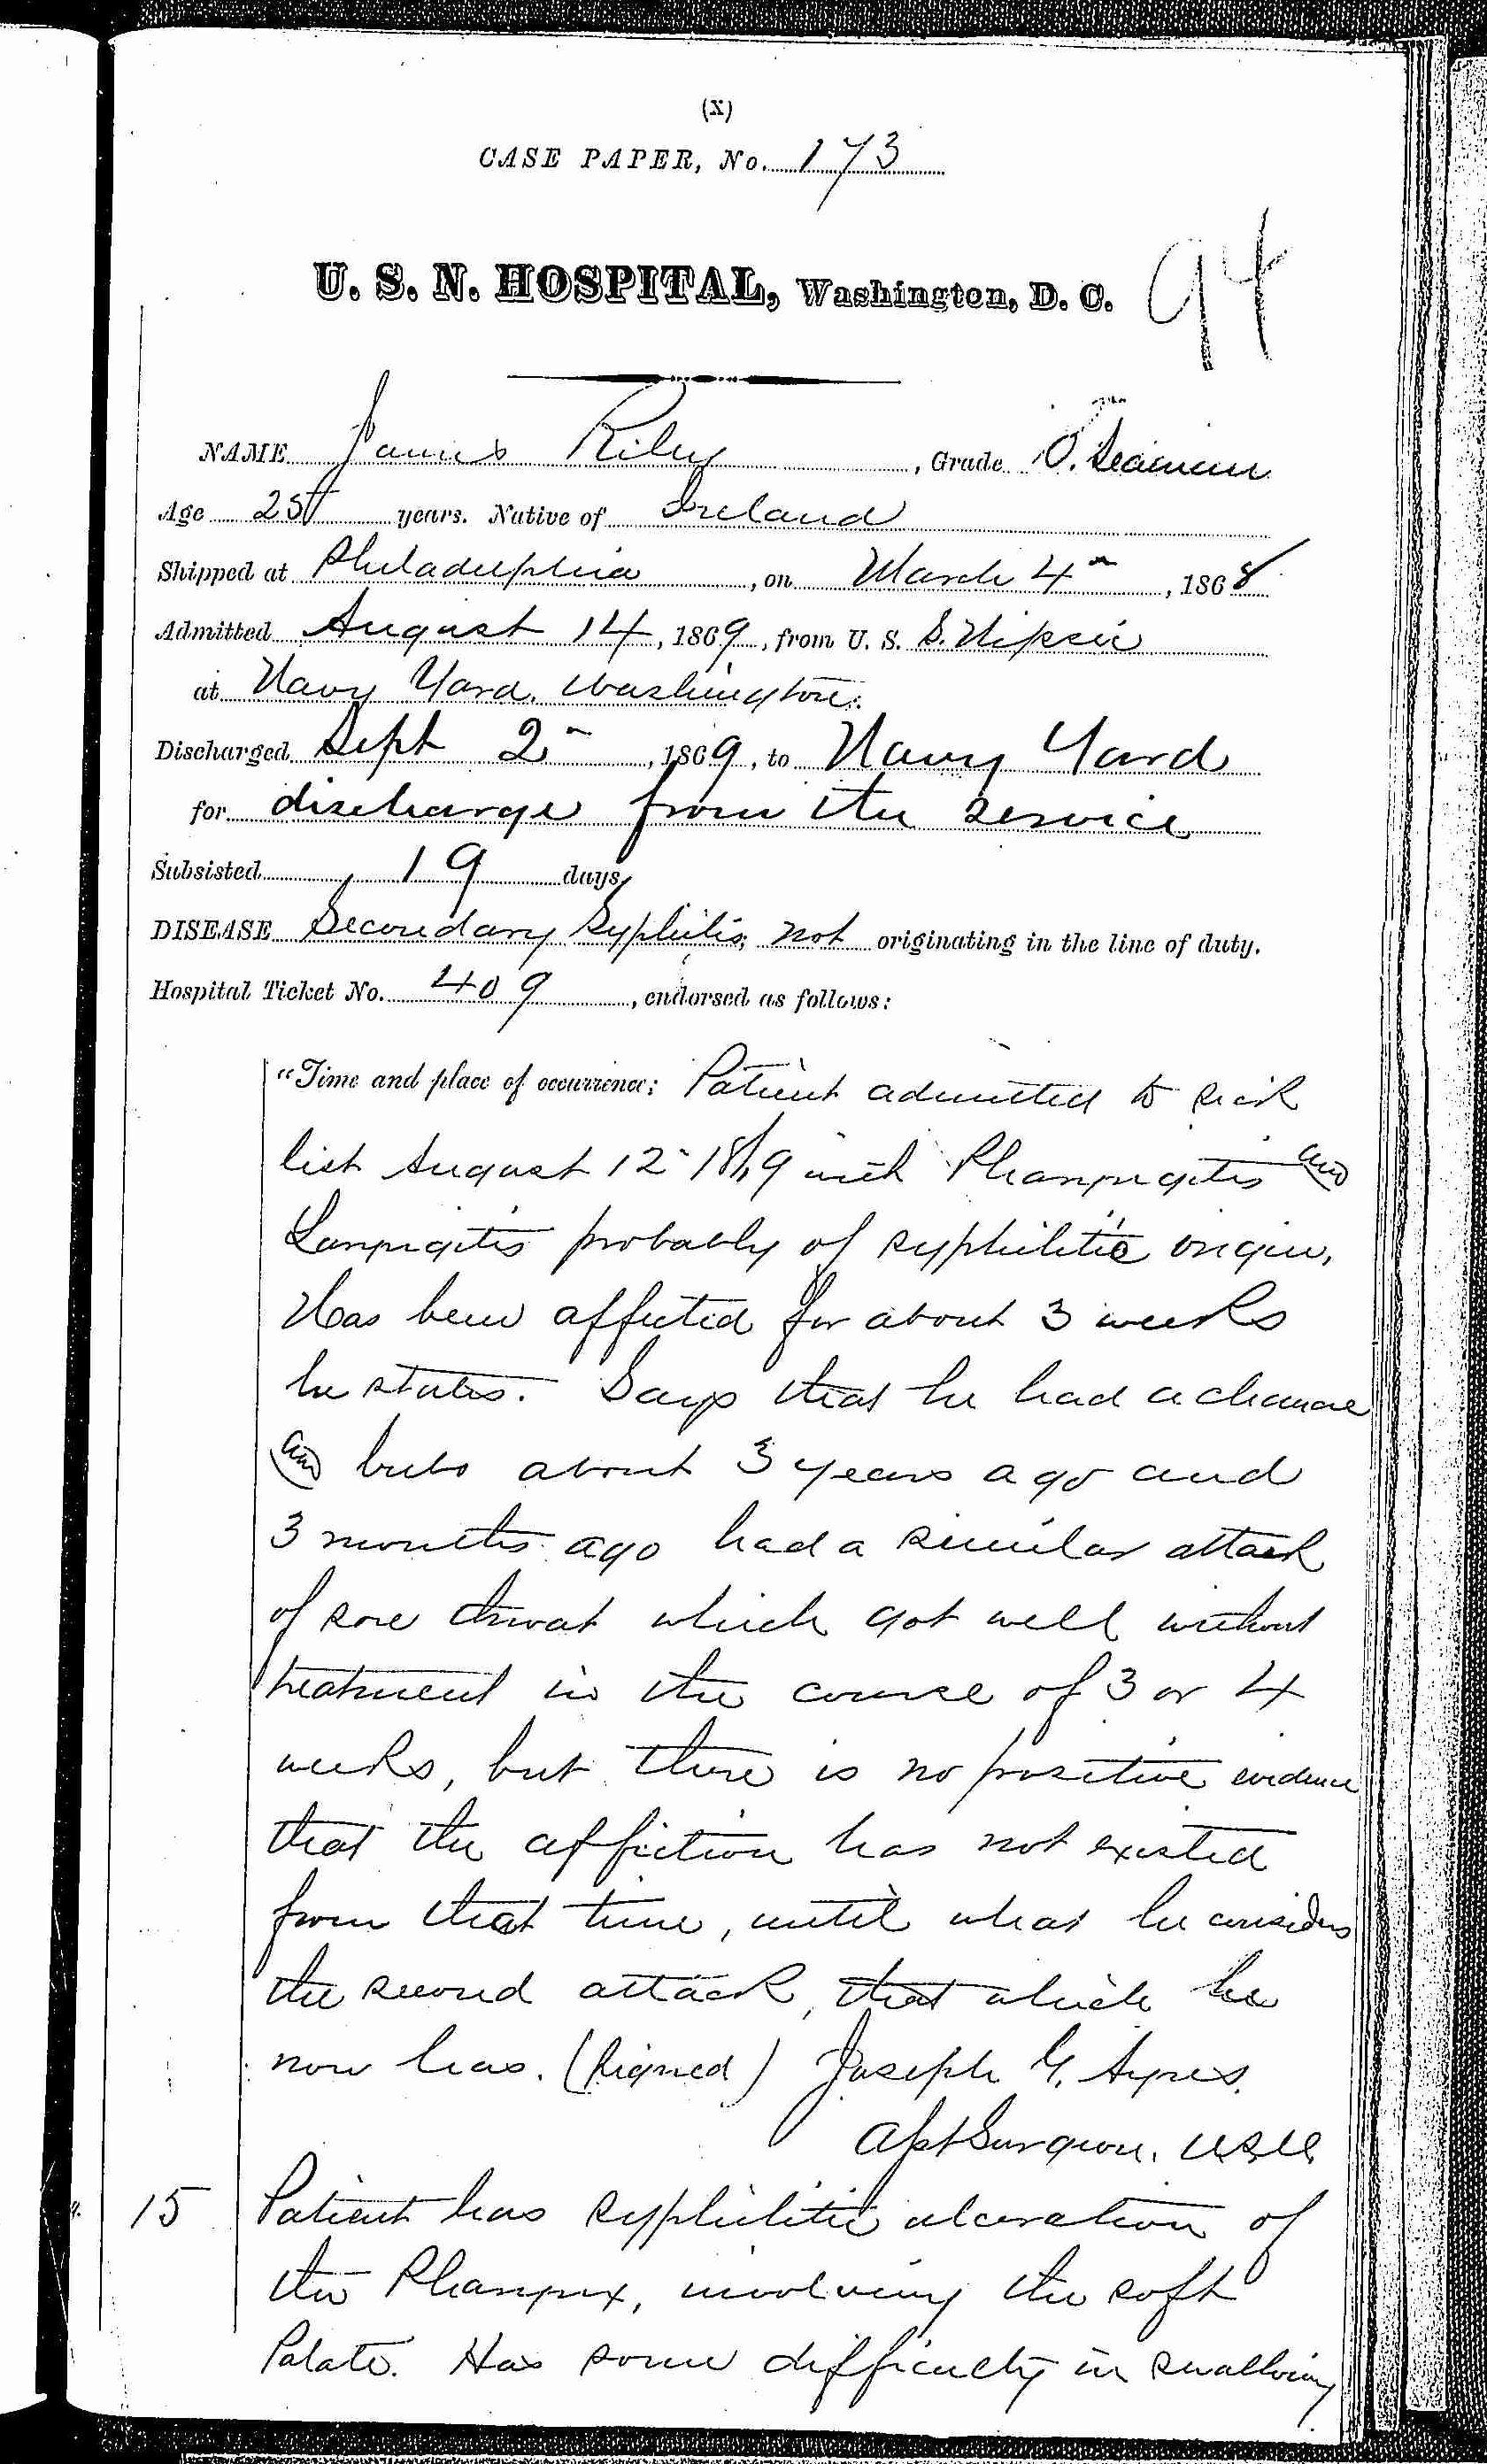 (X)
CASE PAPER, No. 173
94
U. S. N. HOSPITAL, Washington, D. C.
NAME James Riley, Grade O. Seaman
Age 25 years. Native of Ireland
Shipped at Philadelphia, on March 4th, 1868
Admitted August 14, 1869, from U. S. S. Nipsic
at Navy Yard, Washington.
Discharged Sept 2, 1869, to Navy Yard
for discharge from the service
Subsisted 19 days,
DISEASE Secondary Syphilis, not originating in the line of duty.
Hospital Ticket No. 409, endorsed as follows:
"Time and place of occurrence: Patient admitted to sick
list August 12 1869 with Pharyngitis and
Laryngitis probably of syphilitic origin,
Has been affected for about 3 weeks
he states. Says that he had a chancre
and bubo about 3 years ago and
3 months ago had a similar attack
of sore throat which got well without
treatment in the course of 3 or 4
weeks, but there is no positive evidence
that the affection has not existed
from that time, until what he considers
the second attack, that which he
now has. (Signed) Joseph G. Ayres.
Asst Surgeon, USN
15 Patient has syphilitic ulceration of
the Pharynx, involving the soft
Palate. Has some difficulty in swallowing